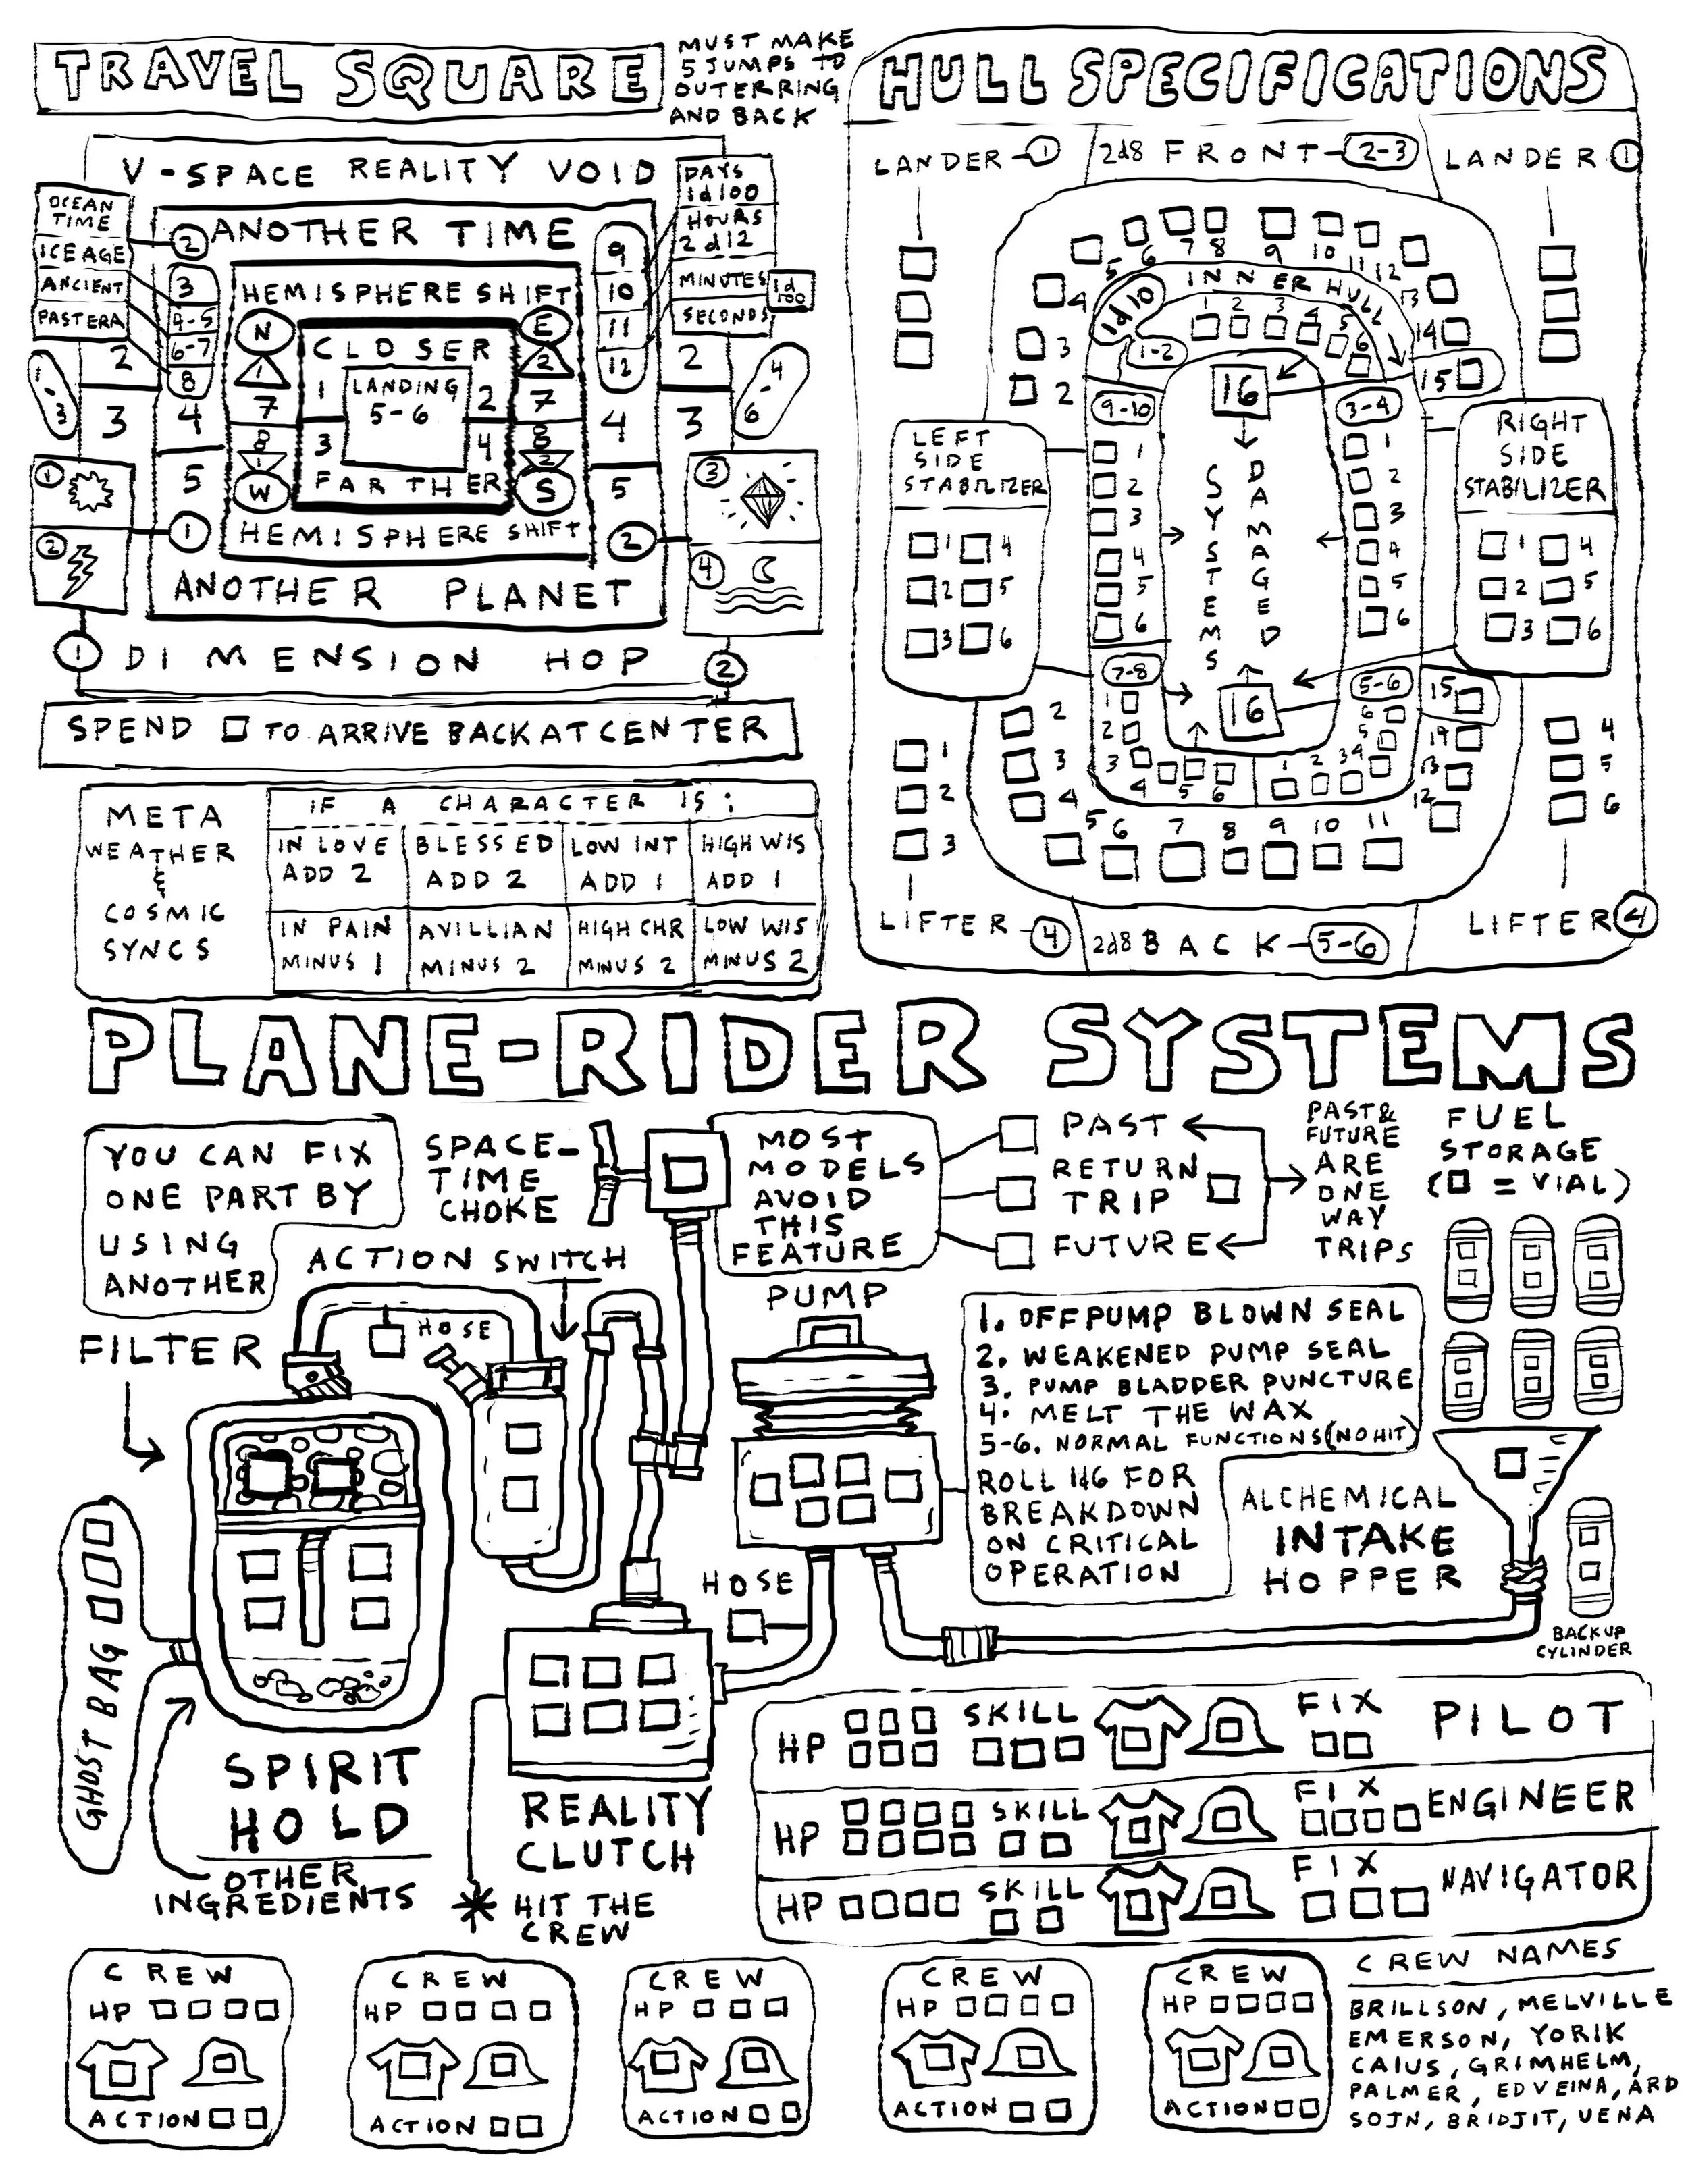 TRAVEL SQUARE
MUST MAKE
5 JUMPS TO
OUTERRING
AND BACK
V-SPACE REALITY VOID
OCEAN
TIME
ICE AGE
ANCIENT
PAST ERA
DAYS
1d100
HOURS
2d12
MINUTES
1d
100
SECONDS
2 ANOTHER TIME
3
4-5
6-7
8
9
10
11
12
HEMISPHERE SHIFT
N
E
1
2
CLOSER
1
LANDING
5-6
2
3
4
FARTHER
7
7
8
8
1
2
W
S
HEMISPHERE SHIFT
2
3
4
5
2
3
4
5
1
-
3
4
-
6
1
2
3
4
1
2
ANOTHER PLANET
1 DIMENSION HOP 2
SPEND TO ARRIVE BACK AT CENTER
META
WEATHER
&
COSMIC
SYNCS
IF A CHARACTER IS:
IN LOVE
ADD 2
BLESSED
ADD 2
LOW INT
ADD 1
HIGH WIS
ADD 1
IN PAIN
MINUS 1
AVILLIAN
MINUS 2
HIGH CHR
MINUS 2
LOW WIS
MINUS 2
HULL SPECIFICATIONS
LANDER-1
2d8 FRONT-2-3
LANDER 1
2
3
4
5
6
7
8
9
10
11
12
13
14
15
INNER HULL
1d10
1-2
1 2 3 4 5 6
16
9-10
3-4
1
2
3
4
5
6
1
2
3
4
5
6
SYSTEMS
DAMAGED
LEFT
SIDE
STABILIZER
1 4
2 5
3 6
RIGHT
SIDE
STABILIZER
1 4
2 5
3 6
7-8
5-6
16
1
2
3
4
5
6
1
2
3
4
5
6
2
3
4
5
6
7
8
9
10
11
12
13
14
15
1
2
3
4
5
6
LIFTER-4
2d8 BACK-5-6
LIFTER 4
PLANE-RIDER SYSTEMS
YOU CAN FIX
ONE PART BY
USING
ANOTHER
SPACE-
TIME
CHOKE
MOST
MODELS
AVOID
THIS
FEATURE
PAST
RETURN
TRIP
FUTURE
PAST &
FUTURE
ARE
ONE
WAY
TRIPS
FUEL
STORAGE
( = VIAL)
ACTION SWITCH
FILTER
HOSE
PUMP
1. OFFPUMP BLOWN SEAL
2. WEAKENED PUMP SEAL
3. PUMP BLADDER PUNCTURE
4. MELT THE WAX
5-6. NORMAL FUNCTIONS (NO HIT)
ROLL 1d6 FOR
BREAKDOWN
ON CRITICAL
OPERATION
ALCHEMICAL
INTAKE
HOPPER
BACKUP
CYLINDER
HOSE
GHOST BAG
SPIRIT
HOLD
OTHER
INGREDIENTS
REALITY
CLUTCH
* HIT THE
CREW
HP SKILL FIX PILOT
HP SKILL FIX ENGINEER
HP SKILL FIX NAVIGATOR
CREW
HP
ACTION
CREW
HP
ACTION
CREW
HP
ACTION
CREW
HP
ACTION
CREW
HP
ACTION
CREW NAMES
BRILLSON, MELVILLE
EMERSON, YORIK
CAIUS, GRIMHELM,
PALMER, EDVEINA, ARD
SOJN, BRIDJIT, VENA